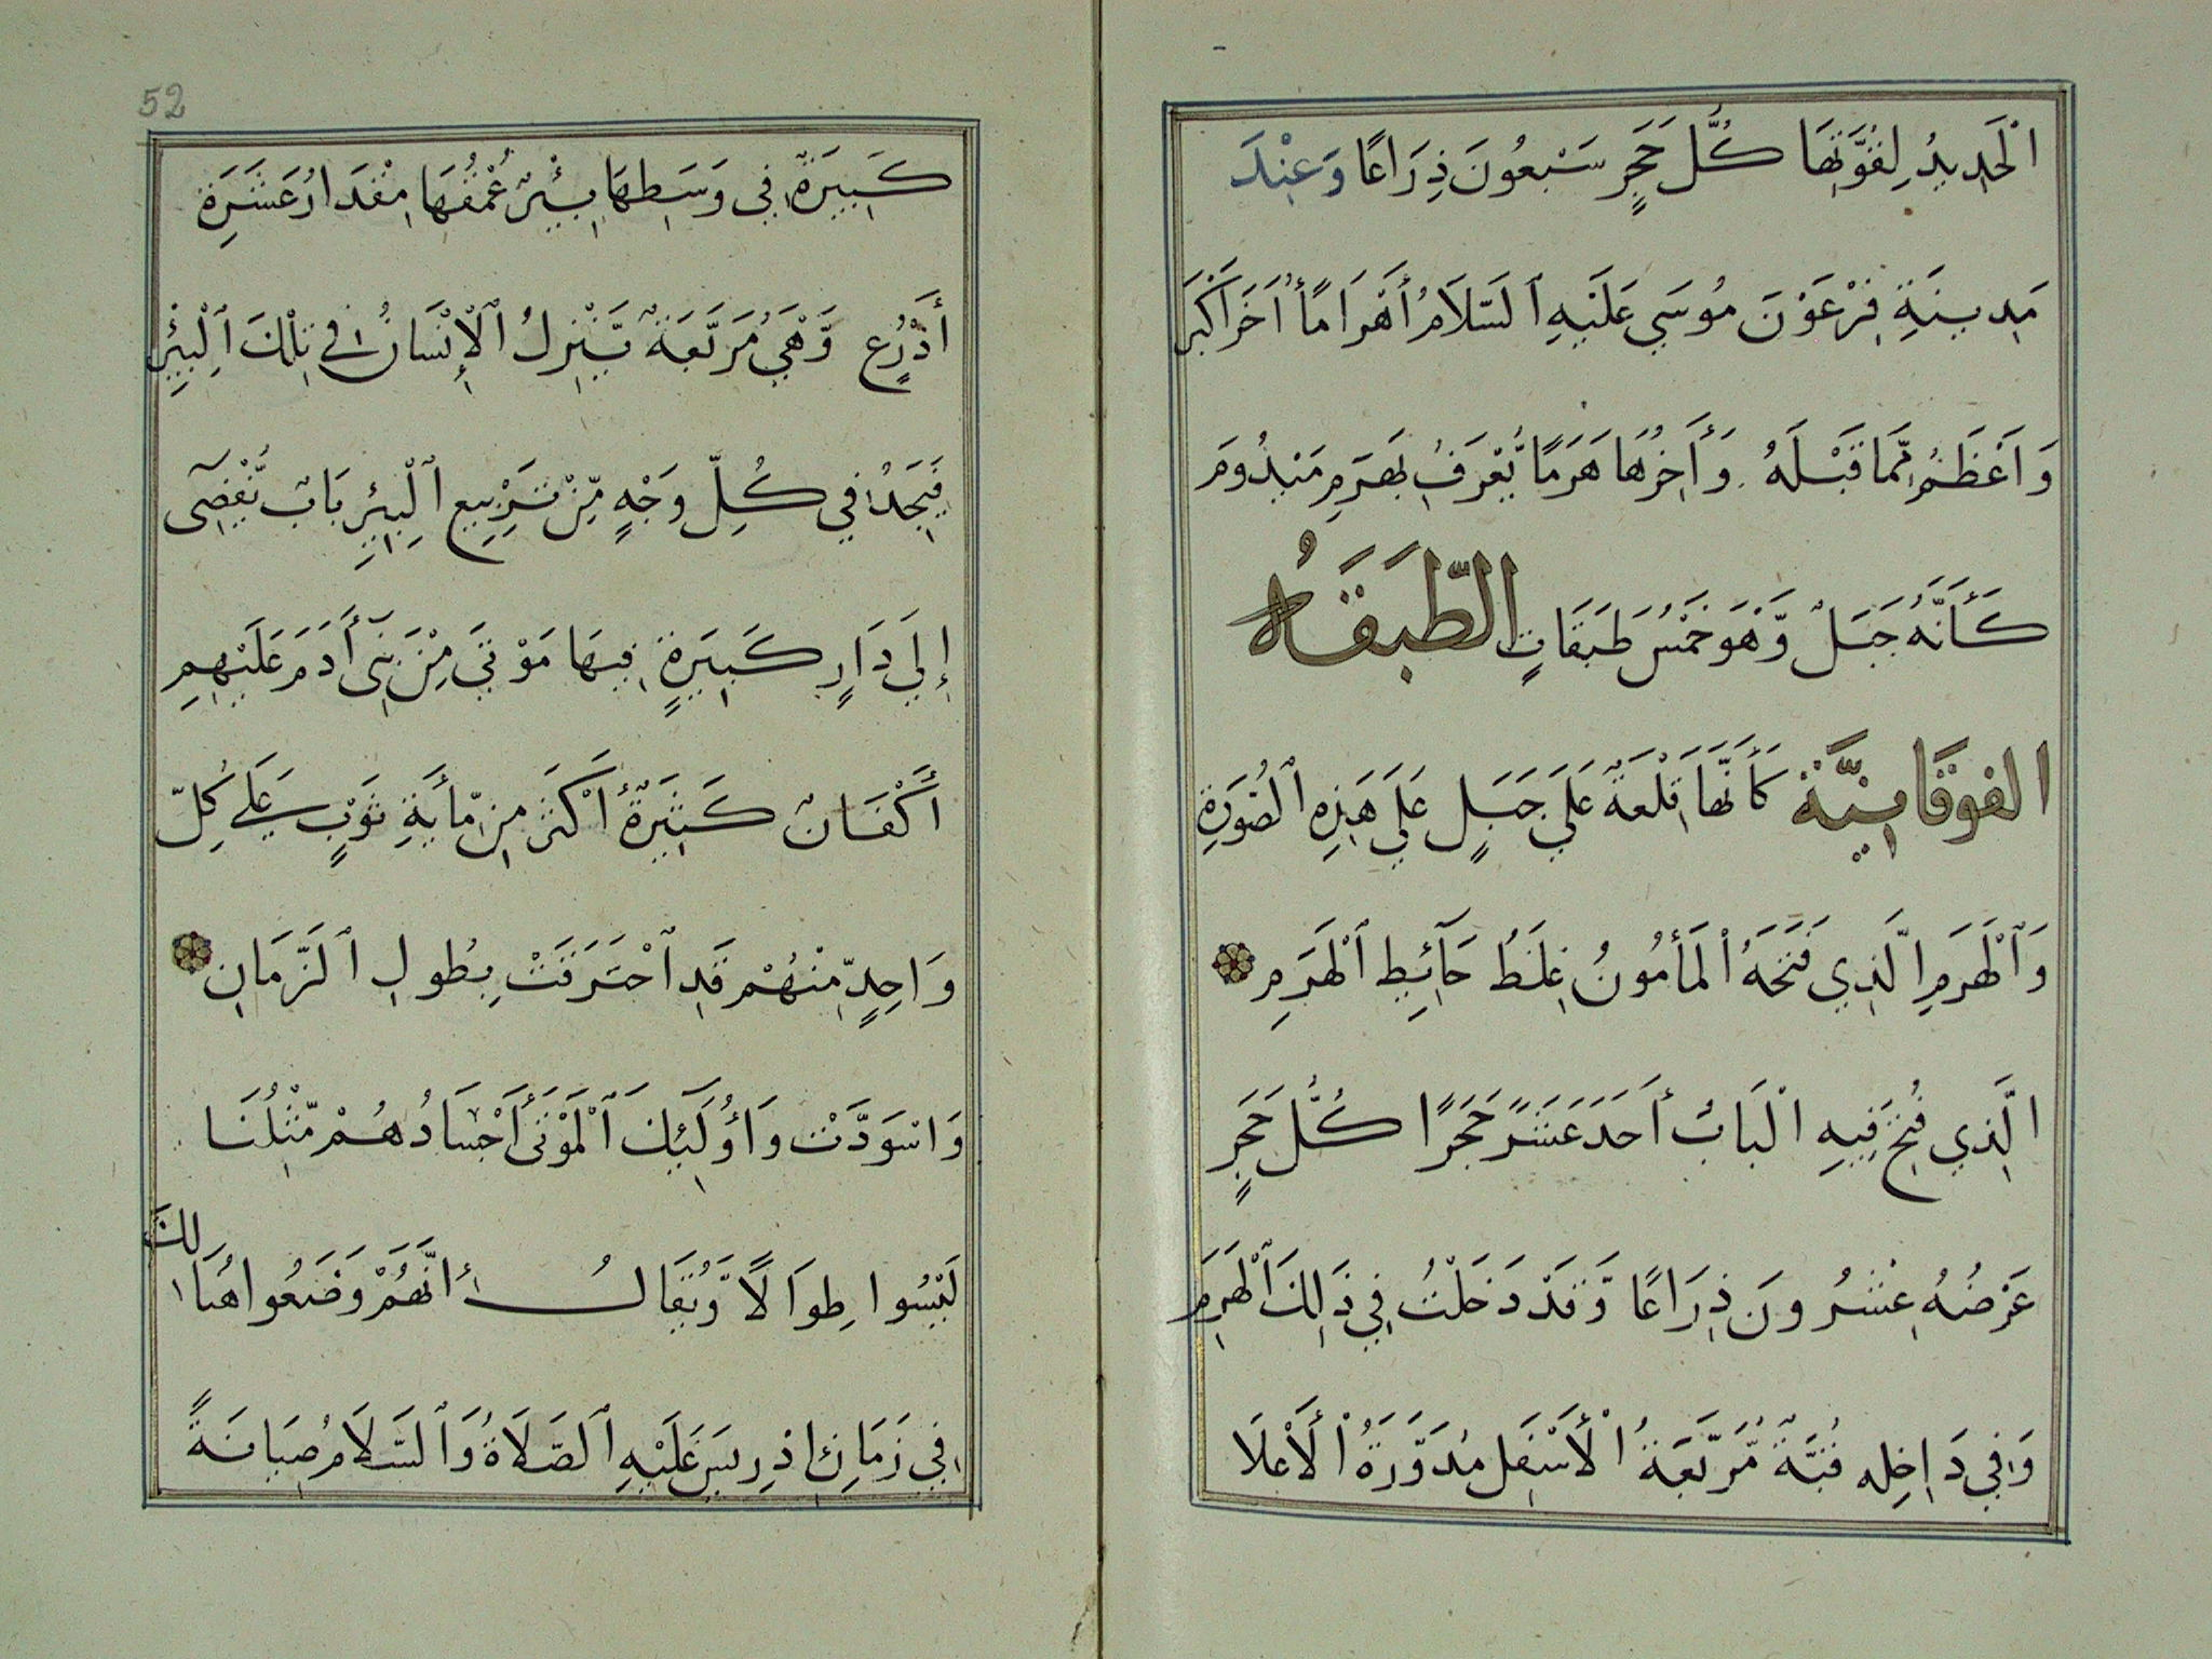 الْحَدِيدُ لِقُوَّتِهَا كُلُّ حَجَرٍ سَبْعُونَ ذِرَاعًا وَعِنْدَ
مَدِينَةِ فِرْعَوْنَ مُوسَي عَلَيْهِ ٱلسَّلَامُ أَهْرَامًا أُخَرَ أَكْبَرَ
وَاَعْظَمُ مِّمَّا قَبْلَهُ وَأَخِرُهَا هَرَمًا يُّعْرَفُ بِهَرَمِ مَيْدُومَ
كَأَنَّهُ جَبَلٌ وَّهُوَ خَمْسُ طَبَقَاتٍ الطَّبَقَاهُ
الفوقَانِيَّة كَأَنَّهَا قَلْعَةٌ عَلَي جَبَلٍ عَلَي هَذِهِ ٱلصُّورَةِ
وَٱلْهَرَمِ الَّذِي فَتَحَهُ ٱلْمَأْمُونُ غِلَظُ حَآئِطِ ٱلْهَرَمِ
الَّذِي فُتِحَ فِيهِ الْبَابُ أَحَدَ عَشَرَ حَجَرًا كُلُّ حَجَرٍ
عَرْضُهُ عِشْرُونَ ذِرَاعًا وَّقَدْ دَخَلْتُ فِي ذَلِكَ ٱلْهَرَمِ
وَفِي دَاخِلِهِ قُبَّةٌ مُّرَبَّعَةُ الْأَسْفَلِ مُدَوَّرَةُ الْأَعْلَا
52
كَبِيرَةٌ فِي وَسَطِهَا بِئْرٌ عُمْقُهَا مِقْدَارُ عَشَرَةِ
أَذْرُعٍ وَّهْيَ مُرَبَّعَةٌ يَّنْزِلُ ٱلْإِنْسَانُ فِي تِلْكَ ٱلْبِئْرِ
فَيَجِدُ فِي كُلِّ وَجْهٍ مِّنْ تَرْبِيعِ ٱلْبِئْرِ بَابٌ يُّفْضِي
إِلَي دَارٍ كَبِيرَةٍ فِيهَا مَوْتَي مِنْ بَنِي أَدَمَ عَلَيْهِمِ
أَكْفَانٌ كَثِيرَةٌ أَكْثَرَ مِن مِّأيَةِ ثَوْبٍ عَلَي كُلِّ
وَاحِدٍ مِّنْهُمْ قَدِ ٱحْتَرَقَتْ بِطُولِ ٱلزَّمَانِ
وَاسْوَدَّتْ وَأُولَئِكَ ٱلْمَوْتَى أَجْسَادُهُمْ مِّثْلُنَا
لَيْسُوا طِوَالًا وَّيُقَالُ أنَّهُمْ وَضَعُوا هُنَالِكَ
فِي زَمَانِ اِدْرِيسَ عَلَيْهِ ٱلصَّلَاةُ وَٱلسَّلَامُ صِيَانَةً